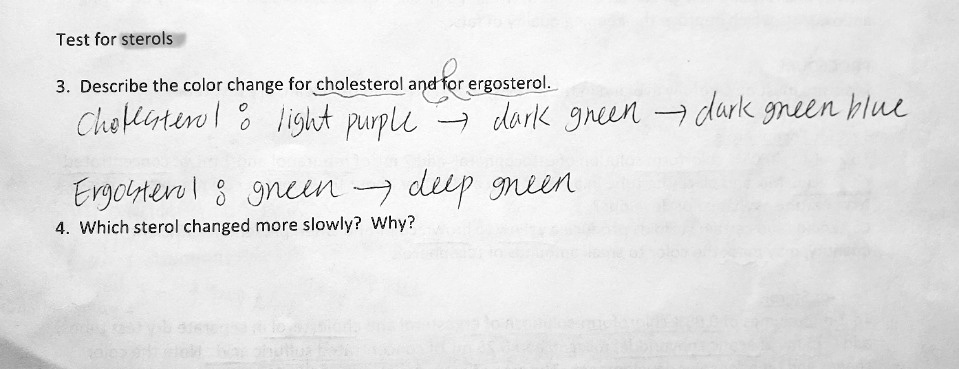 Test for sterols
3. Describe the color change for cholesterol and for ergosterol.
Cholesterol : light purple → dark green → dark green blue
Ergosterol : green → deep green
4. Which sterol changed more slowly? Why?